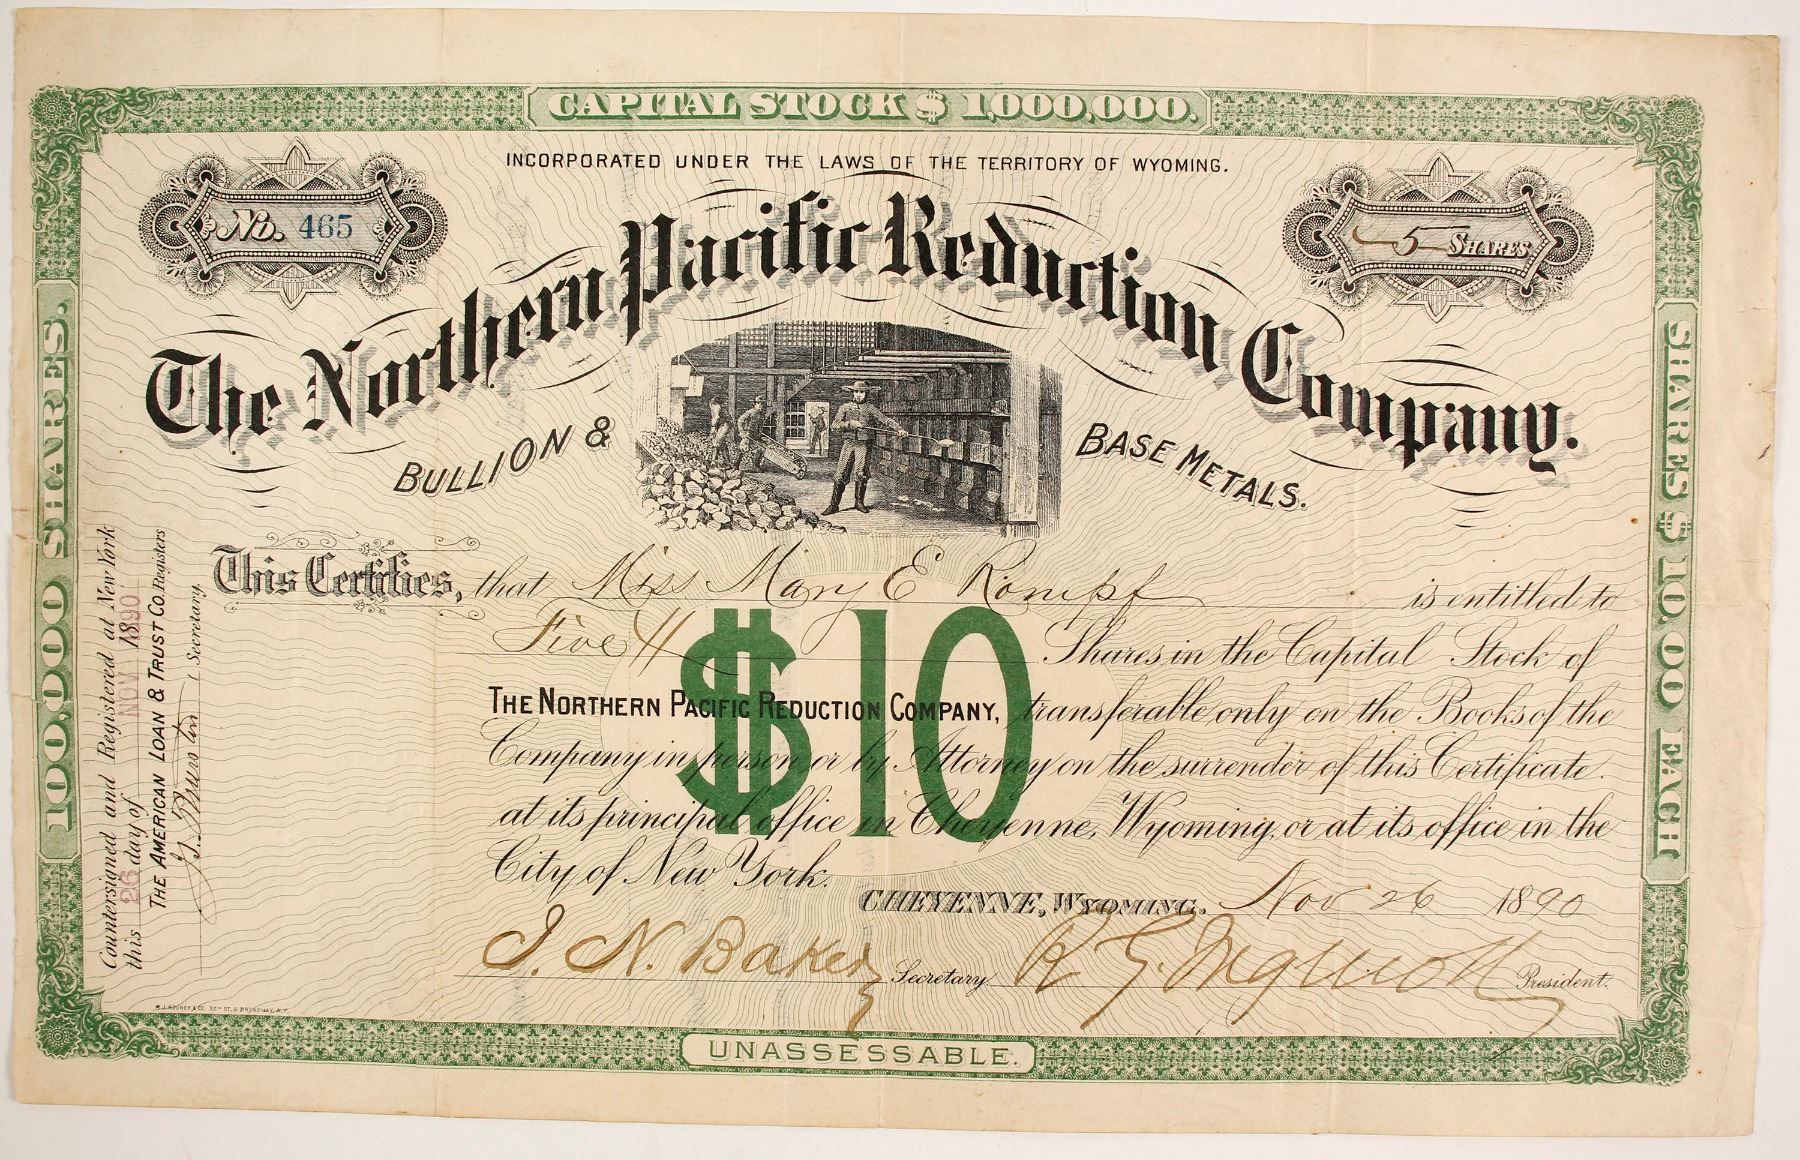 CAPITAL STOCK $ 1,000,000.
INCORPORATED UNDER THE LAWS OF THE TERRITORY OF WYOMING.
No. 465
5 SHARES
The Northern Pacific Reduction Company.
BULLION & BASE METALS.
100,000 SHARES.
SHARES $10.00 EACH
This Certifies, that Miss Mary E Kompf is entitled to
Five Shares in the Capital Stock of
THE NORTHERN PACIFIC REDUCTION COMPANY, transferable only on the Books of the
Company in person or by Attorney on the surrender of this Certificate.
at its principal office in Cheyenne, Wyoming, or at its office in the
City of New York.
CHEYENNE, WYOMING. Nov 26 1890
J. N. Baker Secretary. President.
Countersigned and Registered at New York
this 26 day of NOV 1890
THE AMERICAN LOAN & TRUST CO. Registers
Secretary.
UNASSESSABLE.